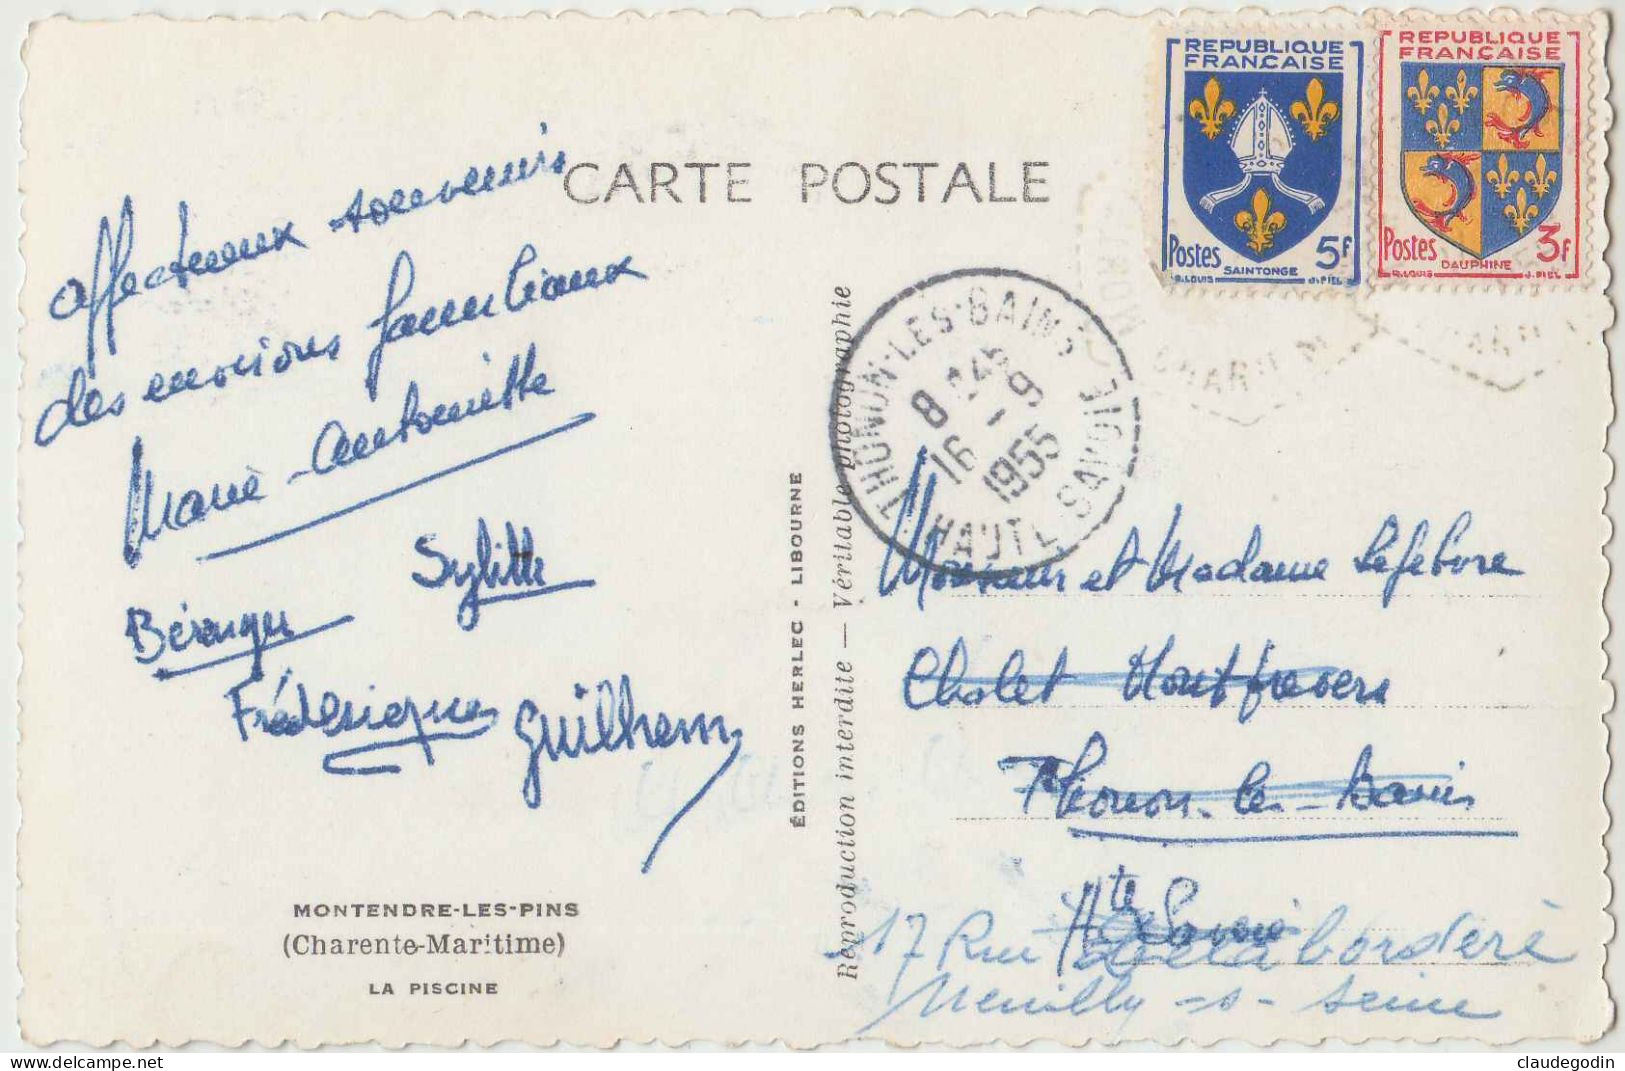 CARTE POSTALE
REPUBLIQUE
FRANÇAISE
Postes 5F
SAINTONGE
R.LOUIS J.PIEL
REPUBLIQUE
FRANÇAISE
Postes 3F
DAUPHINE
R.LOUIS J.PIEL
THONON-LES-BAINS
8 H 45
16 - 9
1955
HAUTE SAVOIE
CHARTE M
affectueux souvenirs
des environs familiaux
Marie-Antoinette
Sylitte
Bérenger
Frédérique
Guilhem
MONTENDRE-LES-PINS
(Charente-Maritime)
LA PISCINE
ÉDITIONS HERLEC - LIBOURNE
Reproduction interdite — Véritable photographie
Monsieur et Madame Lefebvre
Chalet
Thonon-les-Bains
Hte Savoie
17 Rue de la borderè
Neuilly-s-Seine
claudegodin